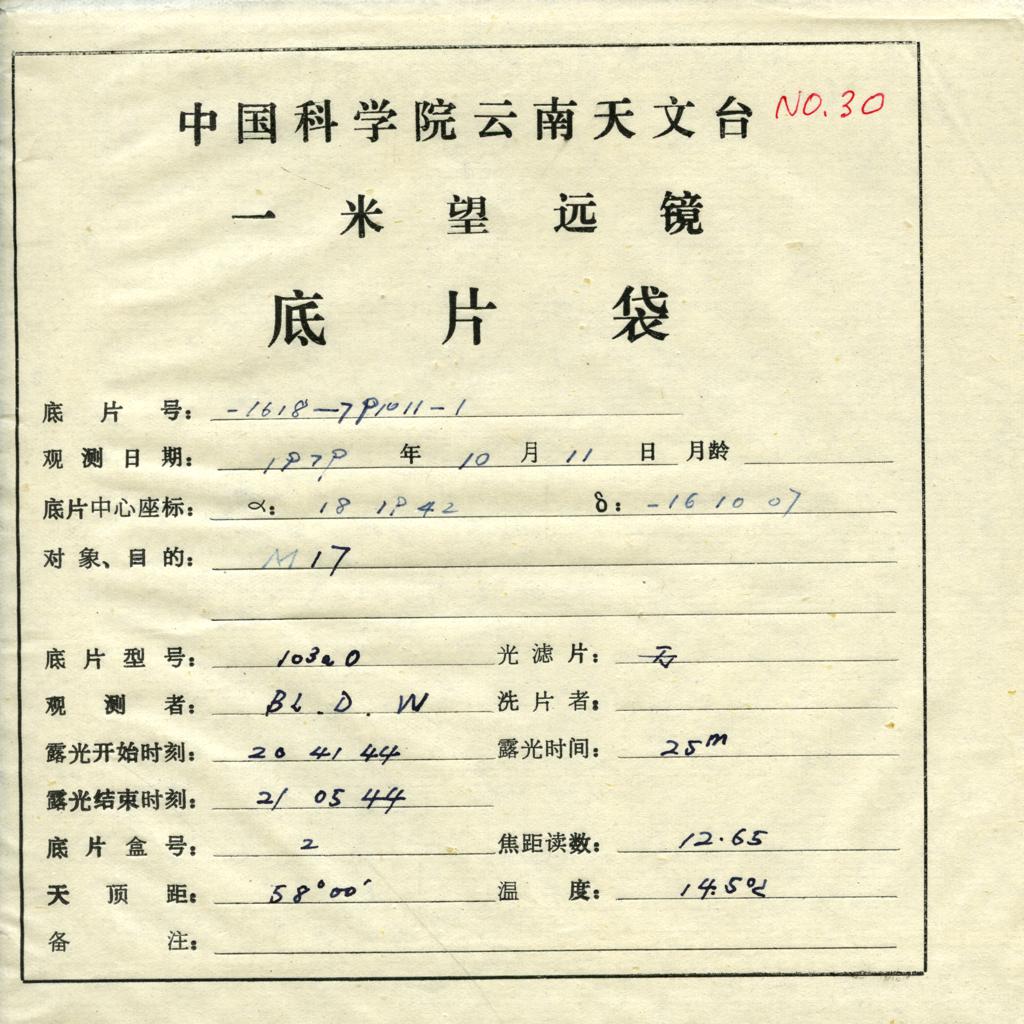 中国科学院云南天文台 NO.30
一米望远镜
底片袋
底片号: -1618-791011-1
观测日期: 1979 年 10 月 11 日 月龄
底片中心座标: α: 18 19 42 δ: -16 10 07
对象、目的: M17
底片型号: 103aO 光滤片: 无
观测者: BL. D. W 洗片者:
露光开始时刻: 20 41 44 露光时间: 25m
露光结束时刻: 21 05 44
底片盒号: 2 焦距读数: 12.65
天顶距: 58°00′ 温度: 14.5℃
备注: